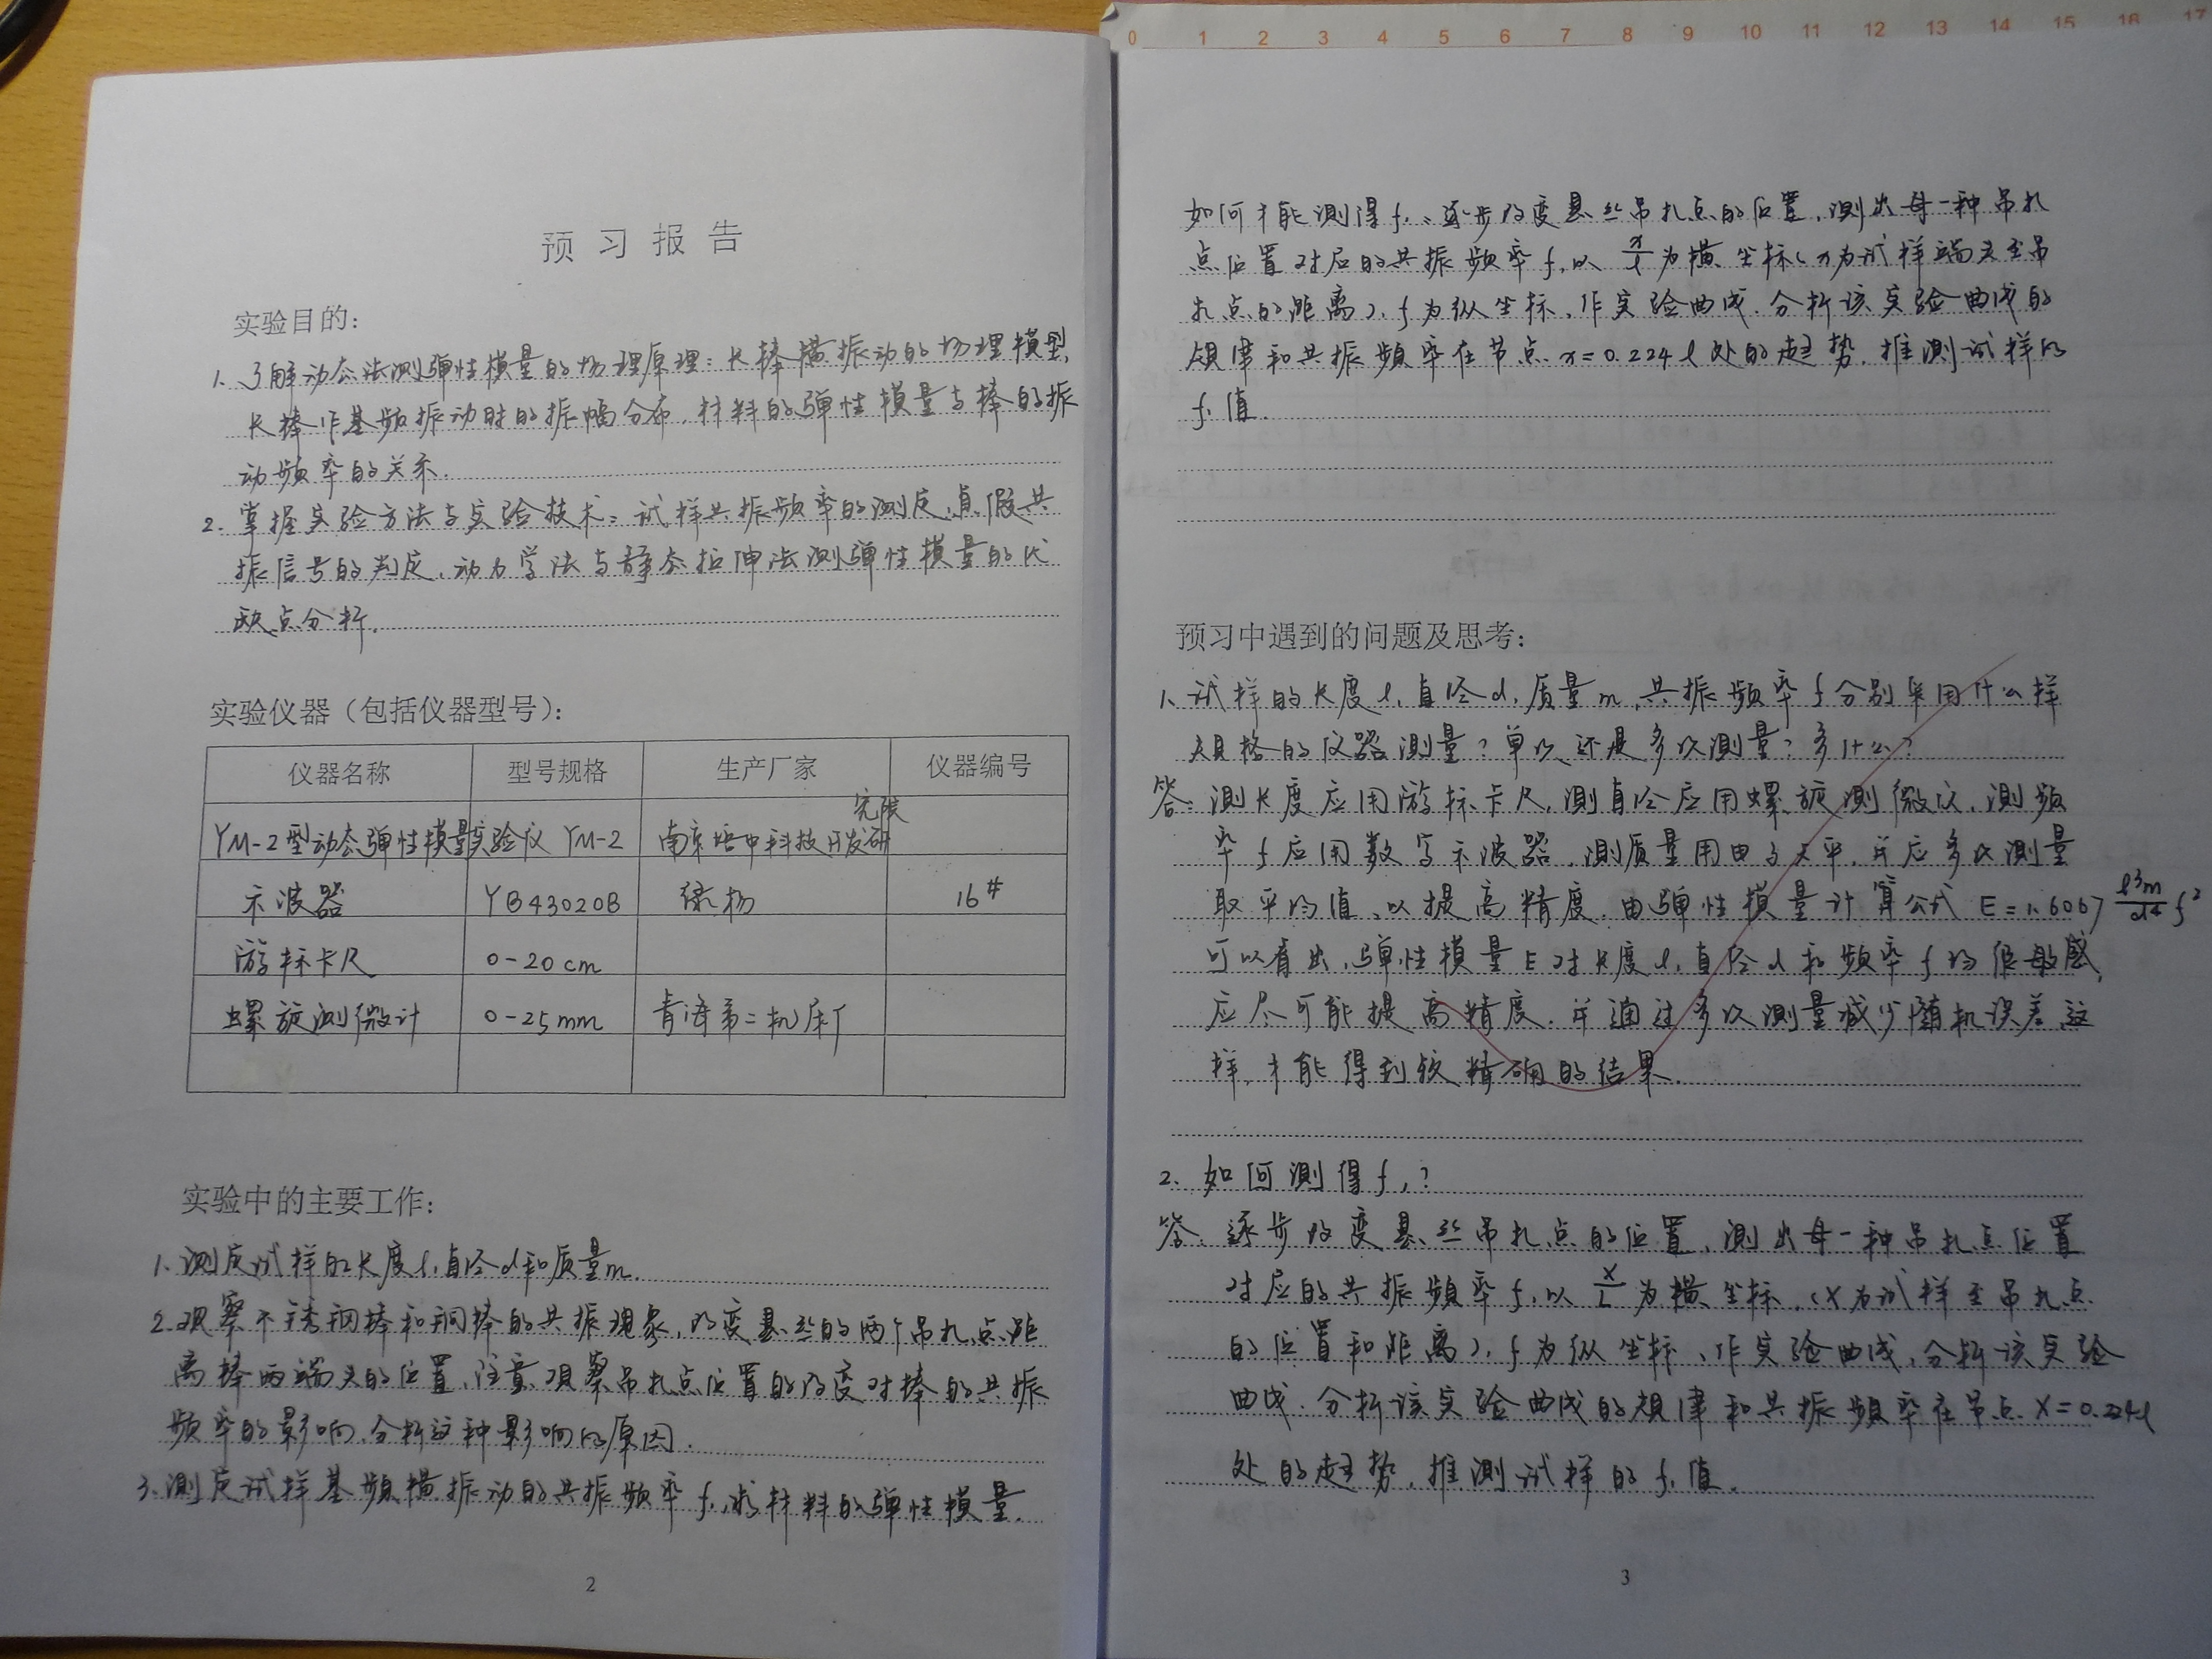 预习报告
实验目的：
1. 了解动态法测弹性模量的物理原理：长棒横振动的物理模型,
长棒作基频振动时的振幅分布，材料的弹性模量与棒的振
动频率的关系.
2. 掌握实验方法与实验技术：试样共振频率的测定，真假共
振信号的判定，动力学法与静态拉伸法测弹性模量的优
缺点分析.
实验仪器（包括仪器型号）：
仪器名称 型号规格 生产厂家 仪器编号
YM-2型动态弹性模量实验仪 YM-2 南京培中科技开发研究院
示波器 YB43020B 绿杨 16#
游标卡尺 0-20cm
螺旋测微计 0-25mm 青海第二机床厂
实验中的主要工作：
1. 测定试样的长度l,直径d和质量m.
2. 观察不锈钢棒和铜棒的共振现象，改变悬丝的两个吊扎点距
离棒两端头的位置，注意观察吊扎点位置的改变对棒的共振
频率的影响，分析这种影响的原因.
3. 测定试样基频横振动的共振频率f₁,求材料的弹性模量.
2
0 1 2 3 4 5 6 7 8 9 10 11 12 13 14 15 16 17
如何才能测得f₁、逐步改变悬丝吊扎点的位置，测出每一种吊扎
点位置对应的共振频率f,以x/l为横坐标(x为试样端头至吊
扎点的距离),f为纵坐标，作实验曲线.分析该实验曲线的
规律和共振频率在节点x=0.224l处的趋势，推测试样的
f₁值.
预习中遇到的问题及思考：
1、试样的长度l,直径d,质量m,共振频率f分别采用什么样
规格的仪器测量？单次还是多次测量？为什么？
答：测长度应用游标卡尺，测直径应用螺旋测微仪，测频
率f应用数字示波器，测质量用电子天平，并应多次测量
取平均值，以提高精度.由弹性模量计算公式 E=1.6067 l³m/d⁴ f²
可以看出，弹性模量E对长度l,直径d和频率f均很敏感,
应尽可能提高精度.并通过多次测量减少随机误差，这
样，才能得到较精确的结果.
2. 如何测得f₁?
答：逐步改变悬丝吊扎点的位置，测出每一种吊扎点位置
对应的共振频率f,以x/L为横坐标，(x为试样至吊扎点
的位置和距离),f为纵坐标，作实验曲线，分析该实验
曲线.分析该实验曲线的规律和共振频率在吊点x=0.224l
处的趋势，推测试样的f₁值.
3